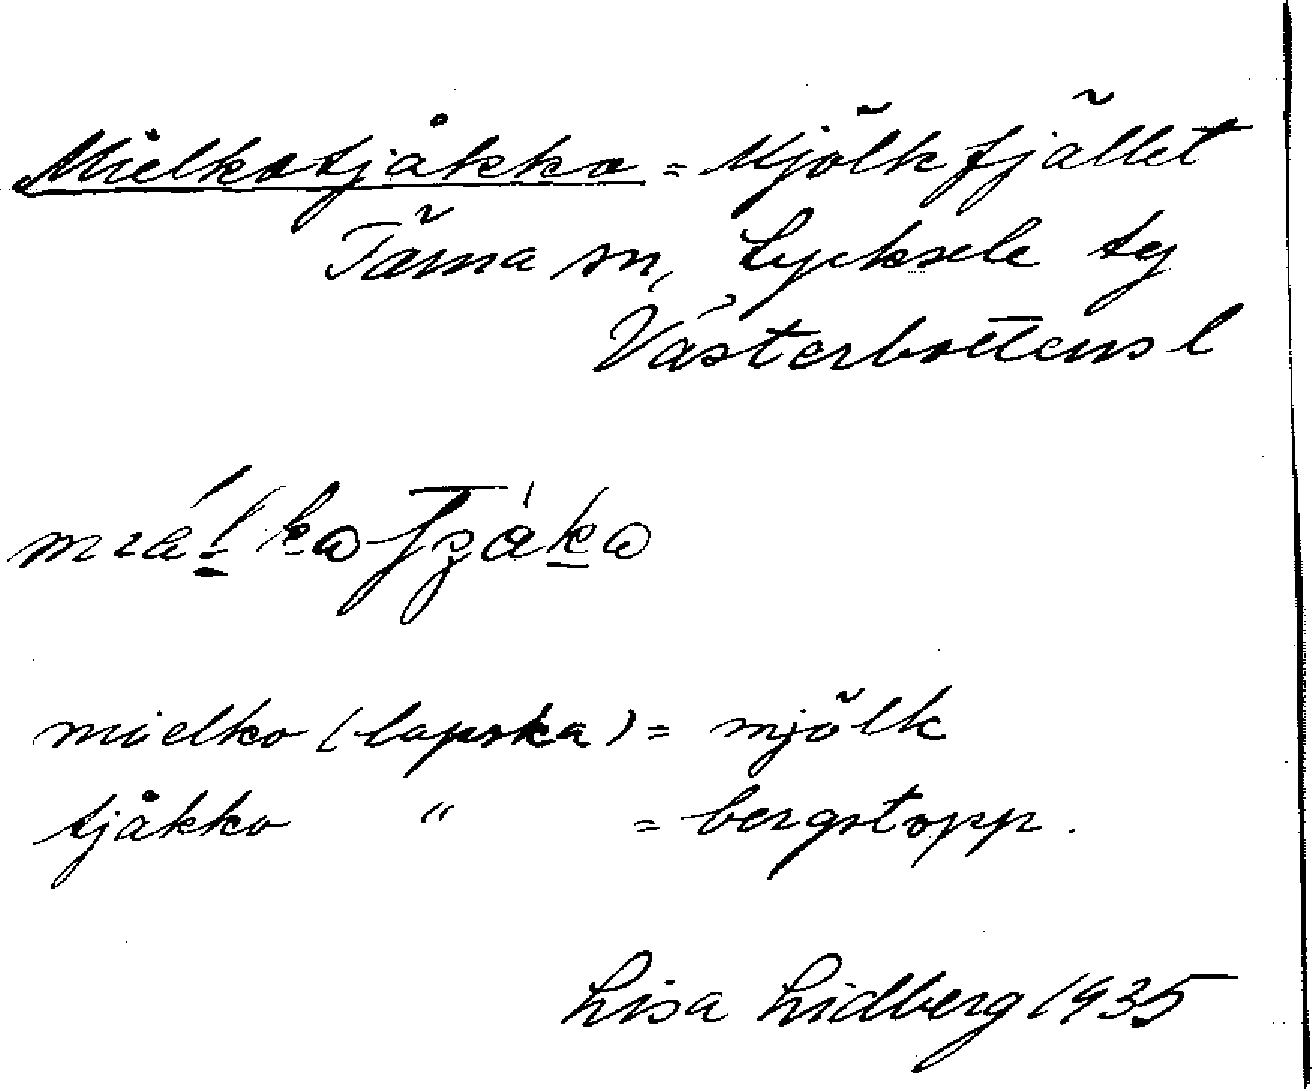 Mielkotjåkko = Mjölkfjället
Tärna sn, Lycksele tg
Västerbottens l
mielko (lapska) = mjölk
tjåkko " = bergstopp.
Lisa Lidberg 1935